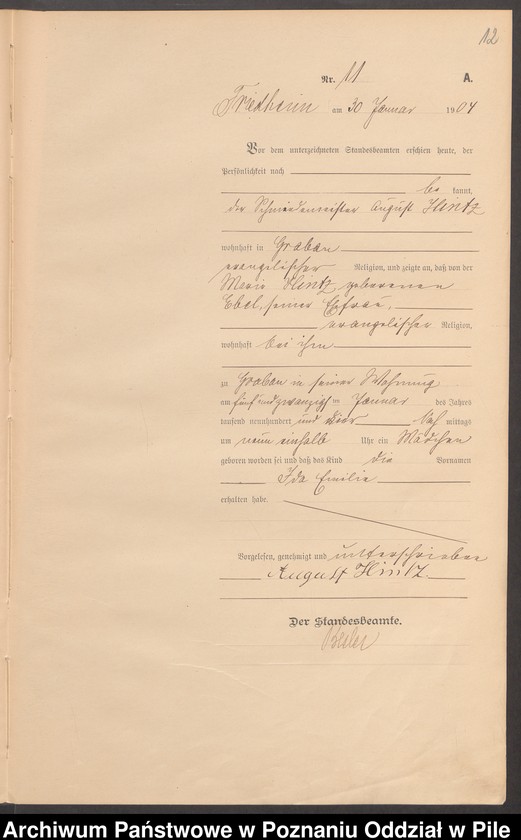 12
Nr. 11 A.
Friedheim am 30 Januar 1904
Vor dem unterzeichneten Standesbeamten erschien heute, der
Persönlichkeit nach
be kannt,
der Schmiedemeister August Hintz
wohnhaft in Graben
evangelischer Religion, und zeigte an, daß von der
Marie Hintz geborenen
Ebel, seiner Ehefrau,
evangelischer Religion,
wohnhaft bei ihm
zu Graben in seiner Wohnung
am fünf und zwanzigsten Januar des Jahres
tausend neunhundert und vier Nach mittags
um neun einhalb Uhr ein Mädchen
geboren worden sei und daß das Kind die Vornamen
Ida Emilie
erhalten habe.
Vorgelesen, genehmigt und unterschrieben
August Hintz.
Der Standesbeamte.
Archiwum Państwowe w Poznaniu Oddział w Pile